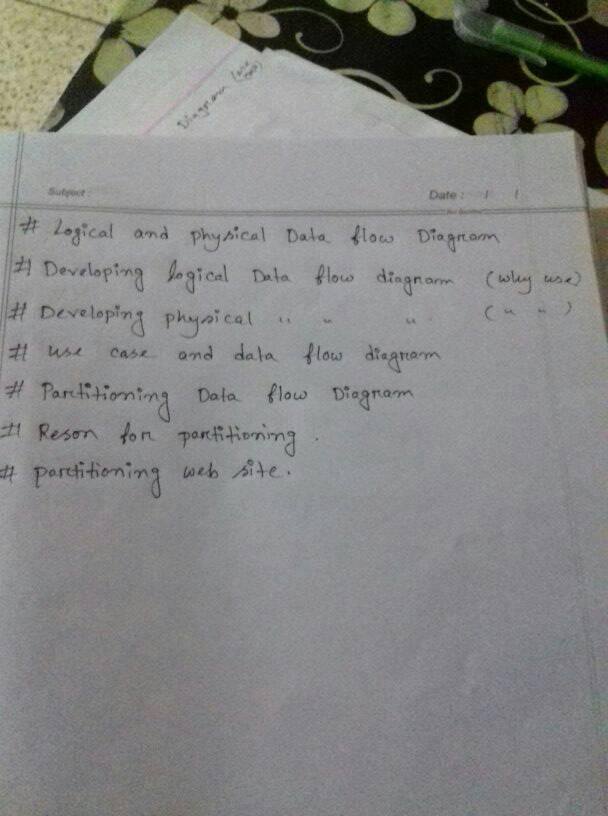 Diagram
Subject :
Date : / /
# Logical and physical Data flow Diagram
# Developing logical Data flow diagram (why use)
# Developing physical " " " (" ")
# use case and data flow diagram
# Partitioning Data flow Diagram
# Reson for partitioning.
# partitioning web site.